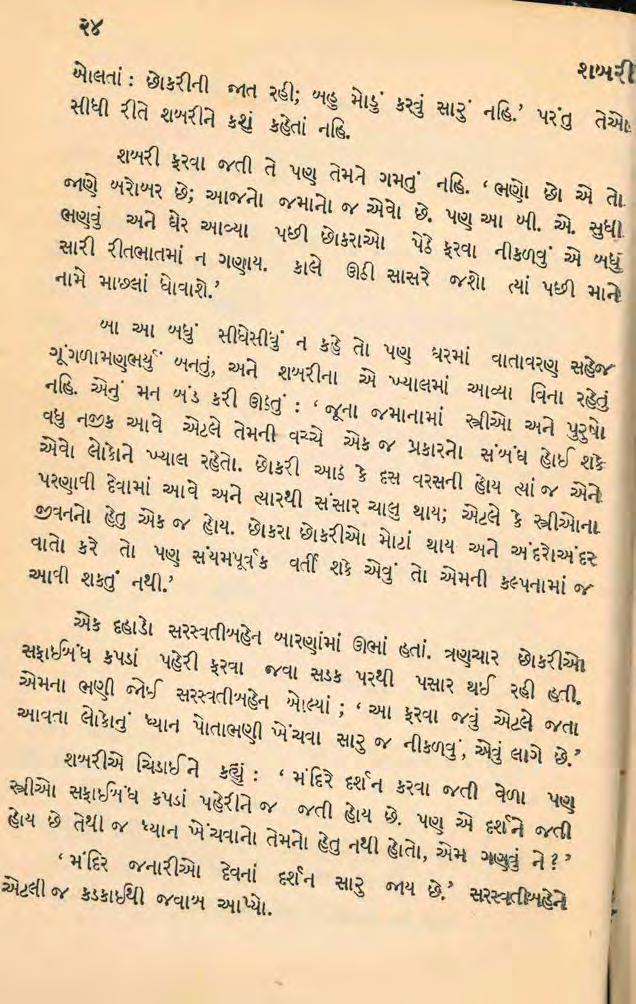 ૨૪
શબરી
બોલતાં : છોકરીની જાત રહી; બહુ મોડું કરવું સારું નહિ.’ પરંતુ તેઓ
સીધી રીતે શબરીને કશું કહેતાં નહિ.
શબરી ફરવા જતી તે પણ તેમને ગમતું નહિ. ‘ ભણો છો એ તો
જાણે બરોબર છે; આજનો જમાનો જ એવો છે. પણ આ બી. એ. સુધી
ભણવું અને ઘેર આવ્યા પછી છોકરાઓ પેઠે ફરવા નીકળવું એ બધું
સારી રીતભાતમાં ન ગણાય. કાલે ઊઠી સાસરે જશો ત્યાં પછી માને
નામે માછલાં ધોવાશે.’
બા આ બધું સીધેસીધું ન કહે તો પણ ઘરમાં વાતાવરણ સહેજ
ગૂંગળામણભર્યું બનતું, અને શબરીના એ ખ્યાલમાં આવ્યા વિના રહેતું
નહિ. એનું મન બંડ કરી ઊઠતું : ‘ જૂના જમાનામાં સ્ત્રીઓ અને પુરુષો
વધુ નજીક આવે એટલે તેમની વચ્ચે એક જ પ્રકારનો સંબંધ હોઈ શકે
એવો લોકોને ખ્યાલ રહેતો. છોકરી આઠ કે દસ વરસની હોય ત્યાં જ એને
પરણાવી દેવામાં આવે અને ત્યારથી સંસાર ચાલુ થાય; એટલે કે સ્ત્રીઓના
જીવનનો હેતુ એક જ હોય. છોકરા છોકરીઓ મોટાં થાય અને અંદરોઅંદર
વાતો કરે તો પણ સંયમપૂર્વક વર્તી શકે એવું તો એમની કલ્પનામાં જ
આવી શકતું નથી.’
એક દહાડો સરસ્વતીબહેન બારણાંમાં ઊભાં હતાં. ત્રણચાર છોકરીઓ
સફાઈબંધ કપડાં પહેરી ફરવા જવા સડક પરથી પસાર થઈ રહી હતી.
એમના ભણી જોઈ સરસ્વતીબહેન બોલ્યાં ; ‘ આ ફરવા જવું એટલે જતા
આવતા લોકોનું ધ્યાન પોતાભણી ખેંચવા સારુ જ નીકળવું, એવું લાગે છે.’
શબરીએ ચિડાઈને કહ્યું : ‘ મંદિરે દર્શન કરવા જતી વેળા પણ
સ્ત્રીઓ સફાઈબંધ કપડાં પહેરીને જ જતી હોય છે. પણ એ દર્શને જતી
હોય છે તેથી જ ધ્યાન ખેંચવાનો તેમનો હેતુ નથી હોતો, એમ ગણવું ને ? ’
‘ મંદિર જનારીઓ દેવનાં દર્શન સારુ જાય છે.’ સરસ્વતીબહેને
એટલી જ કડકાઈથી જવાબ આપ્યો.